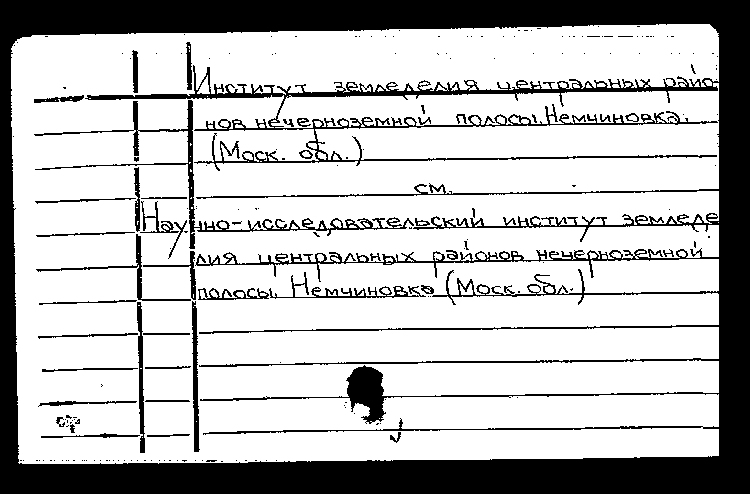 Институт земледелия центральных райо-
нов нечерноземной полосы. Немчиновка.
(Моск. обл.)
см.
Научно-исследовательский институт земледе
лия центральных районов нечерноземной
полосы. Немчиновка (Моск. обл.)